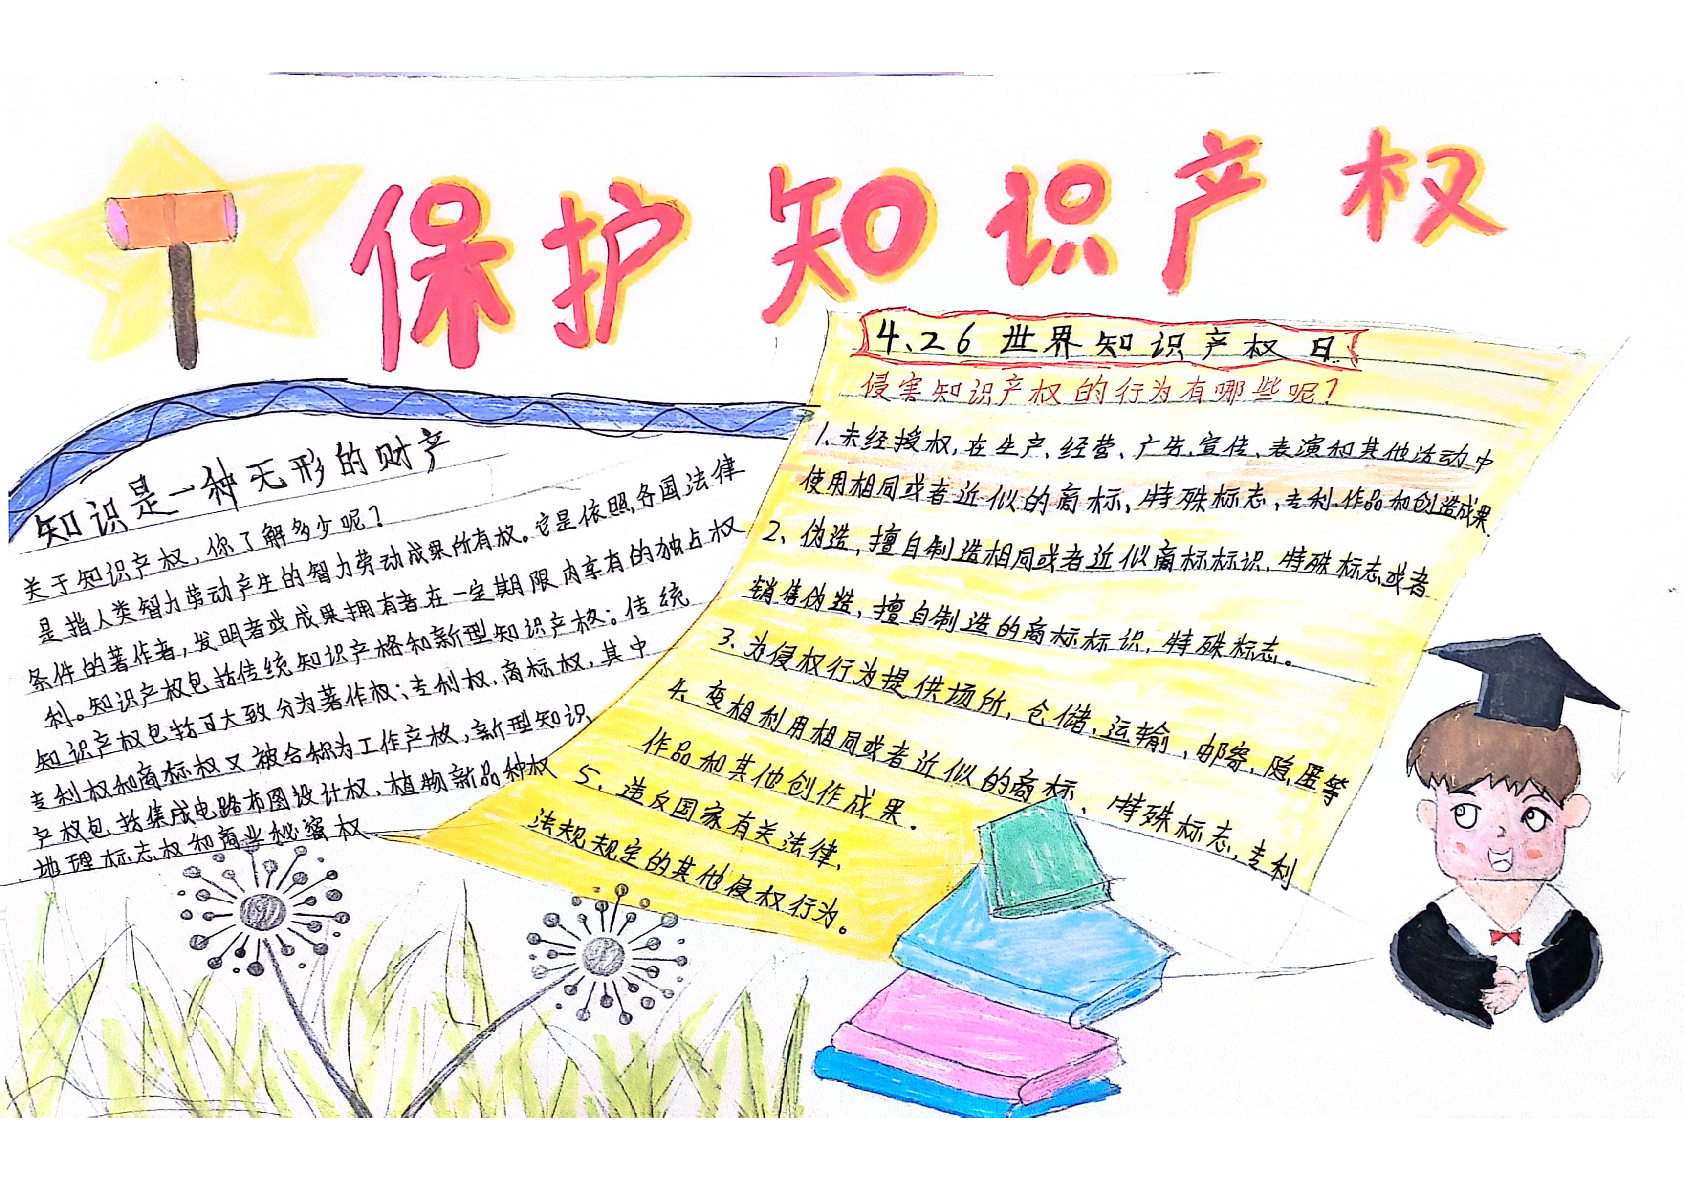 保护知识产权
知识是一种无形的财产
关于知识产权，你了解多少呢？
是指人类智力劳动产生的智力劳动成果所有权。它是依照各国法律
条件的著作者，发明者或成果拥有者在一定期限内享有的独占权
利。知识产权包括传统知识产格和新型知识产格；传统
知识产权包括可大致分为著作权；专利权，商标权，其中
专利权和商标权又被合称为工作产格，新型知识
产权包括集成电路布图设计权，植物新品种权
地理标志权和商业秘密权
4、26世界知识产权日
侵害知识产权的行为有哪些呢？
1、未经授权，在生产、经营、广告、宣传、表演和其他活动中
使用相同或者近似的商标，特殊标志，专利、作品和创造成果
2、伪造，擅自制造相同或者近似商标标识，特殊标志或者
销售伪造，擅自制造的商标标识，特殊标志。
3、为侵权行为提供场所，仓储，运输、邮寄，隐匿等
4、变相利用相同或者近似的商标、特殊标志，专利
作品和其他创作成果。
5、造反国家有关法律、
法规规定的其他侵权行为。